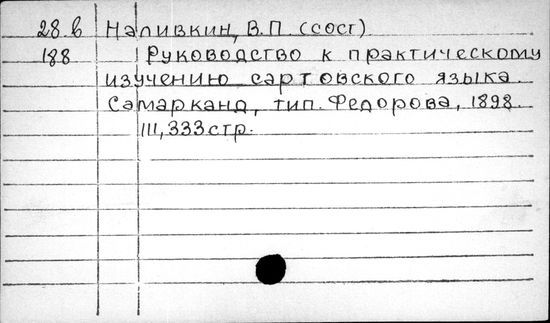 28.в Наливкин, В.П. (сост)
188 Руководство к практическому
изучению сартовского языка.
Самарканд, тип. Федорова, 1898.
III, 333 стр.